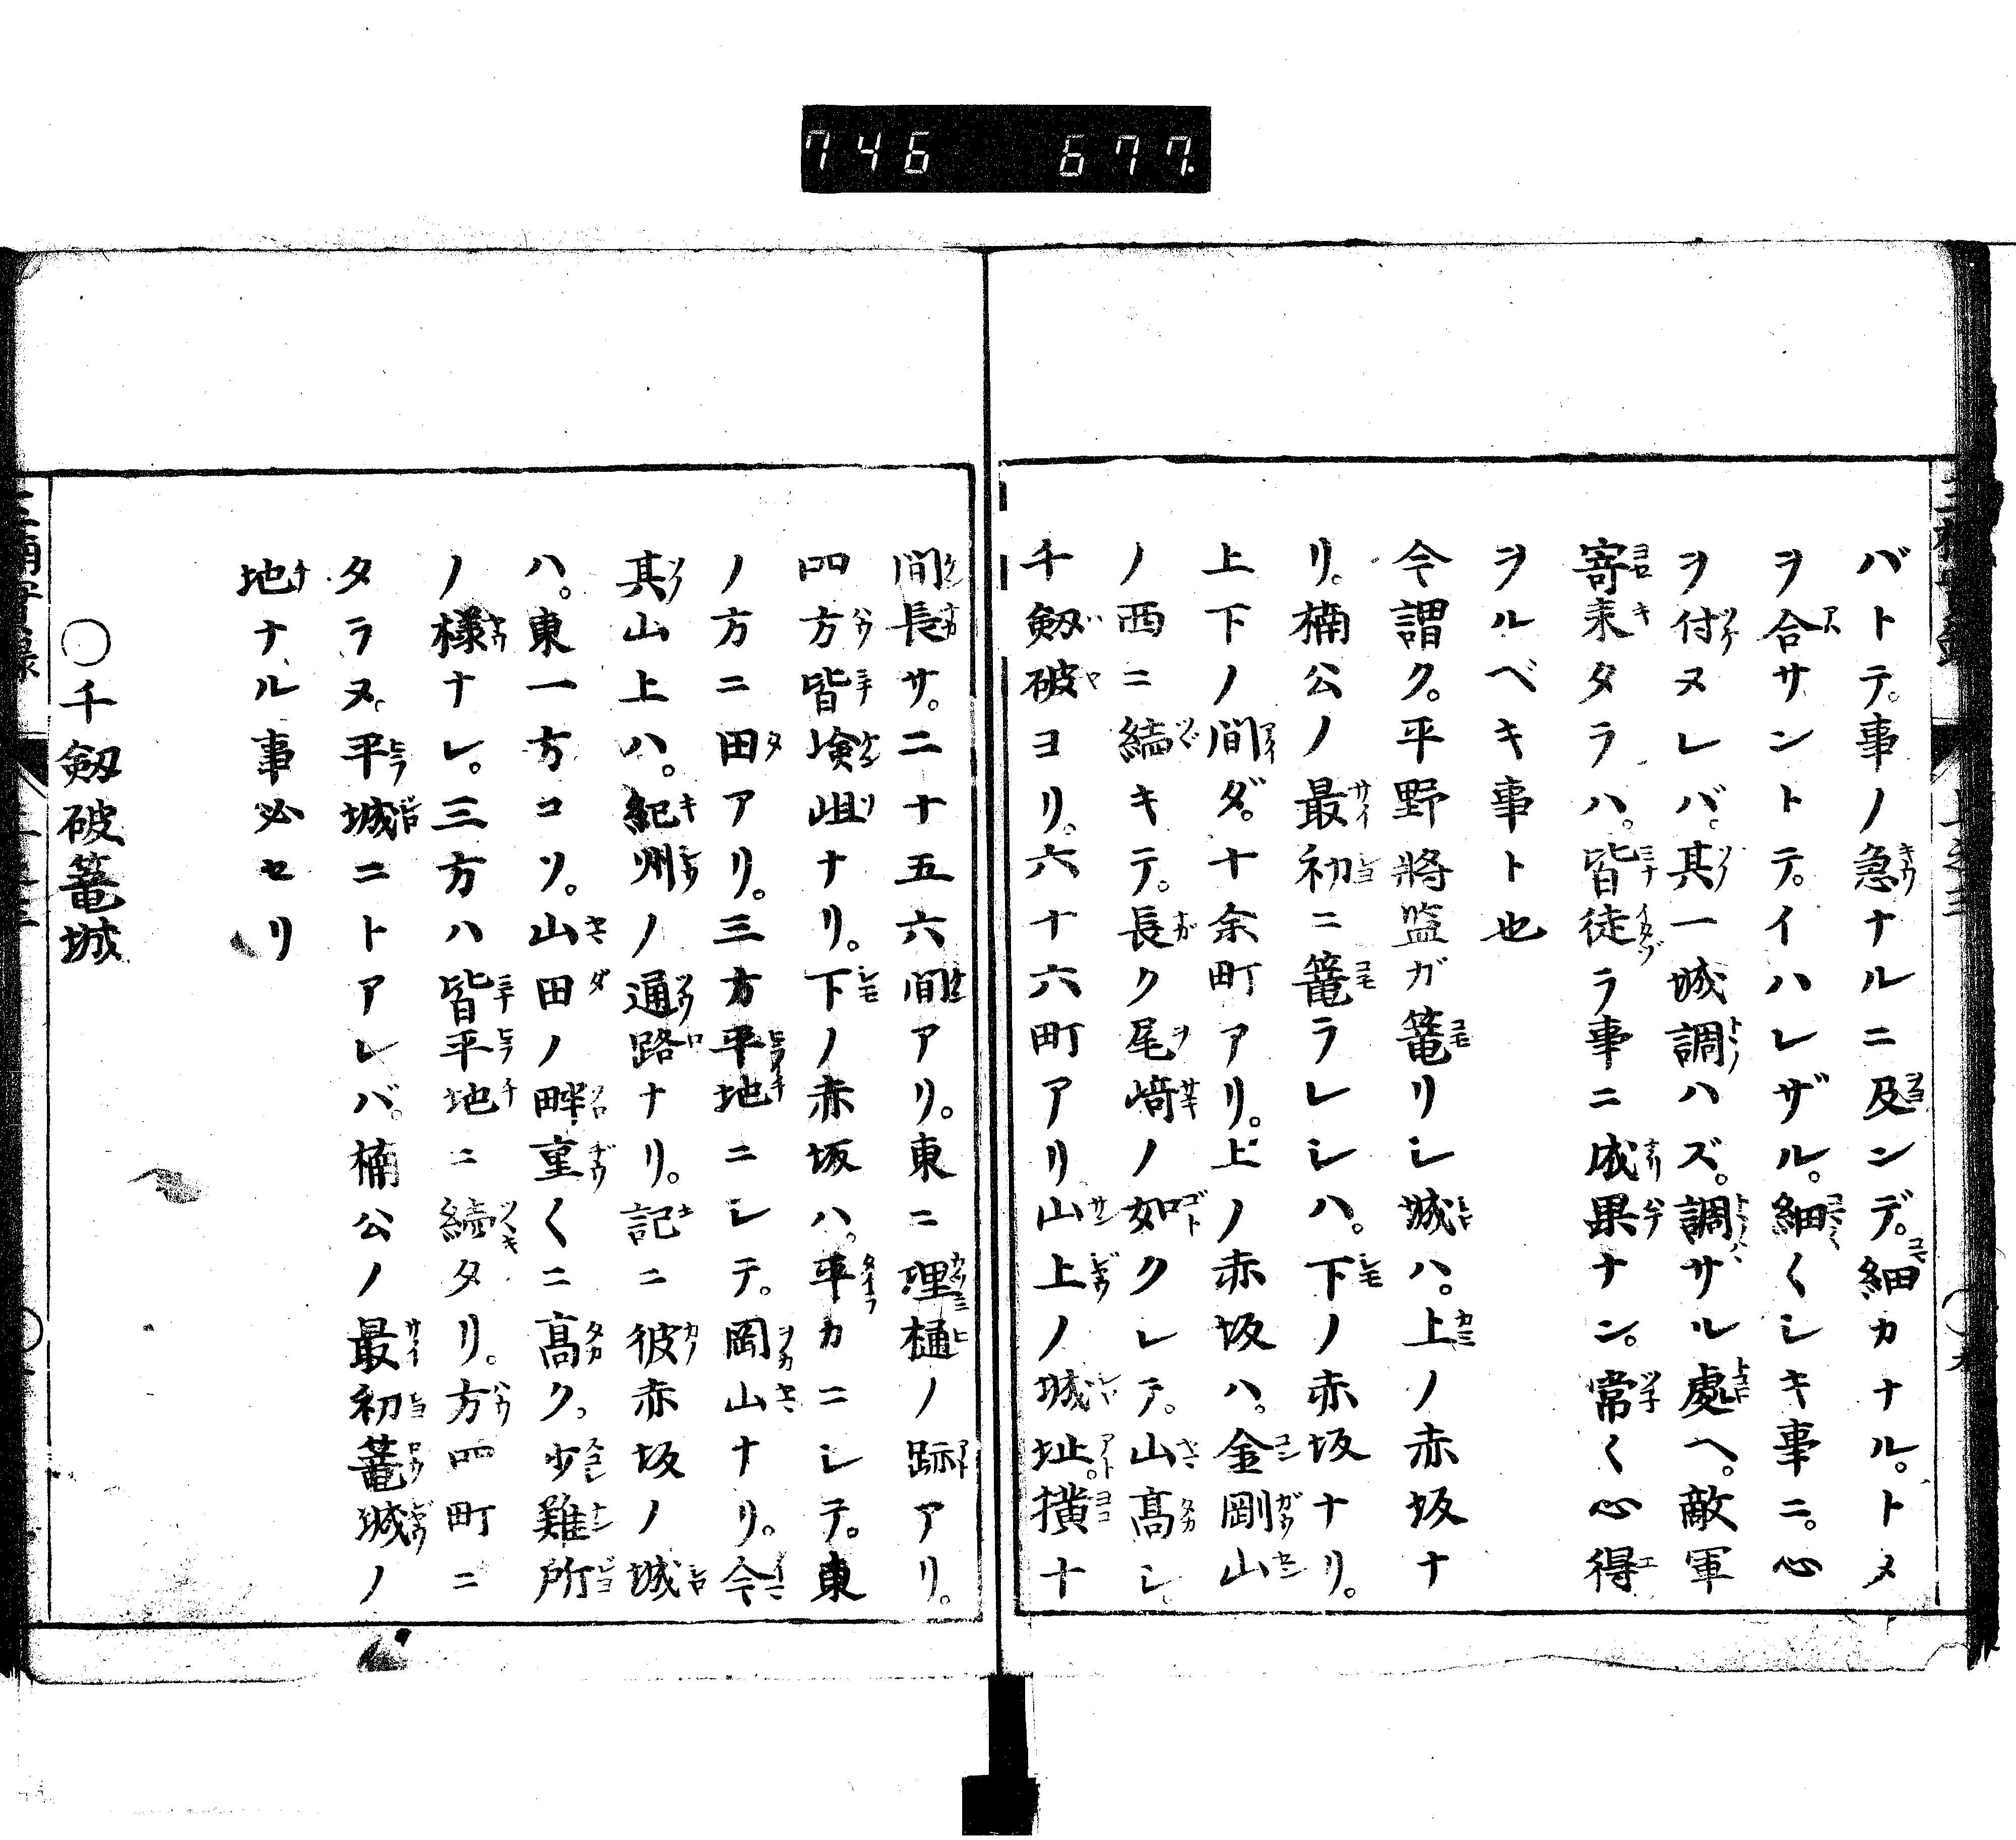 746 677.
バトテ。事ノ急ナルニ及ンデ。細カナル。トメ
ヲ合サントテ。イハレザル。細〱シキ事ニ。心
ヲ付ヌレバ。其一城調ハズ。調サル處ヘ。敵軍
寄来タラハ。皆徒ラ事ニ成果ナン。常〱心得
ヲルベキ事ト也
今謂ク。平野將監ガ篭リシ城ハ。上ノ赤坂ナ
リ。楠公ノ最初ニ篭ラレシハ。下ノ赤坂ナリ。
上下ノ間ダ。十余町アリ。上ノ赤坂ハ。金剛山
ノ西ニ續キテ。長ク尾﨑ノ如クレテ。山髙シ。
千剱破ヨリ。六十六町アリ山上ノ城址。横十
間長サ。二十五六間アリ。東ニ埋樋ノ跡アリ。
四方皆嶮岨ナリ。下ノ赤坂ハ。平カニシテ。東
ノ方ニ田アリ。三方平地ニシテ。岡山ナリ。今
其山上ハ。紀州ノ通路ナリ。記ニ彼赤坂ノ城
ハ。東一方コソ。山田ノ畔重〱ニ髙ク。少難所
ノ様ナレ。三方ハ皆平地ニ續タリ。方四町ニ
タラヌ。平城ニトアレバ。楠公ノ最初篭城ノ
地ナル事必セリ
〇千剱破篭城